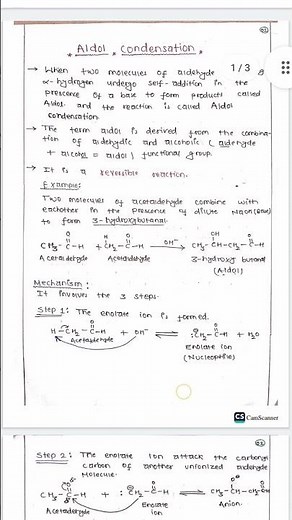 Aldol Condensation
→ When two molecules of aldehyde
1/3
α-hydrogen undergo self-addition in the
prescene of a base to form products called
Aldol and the reaction is called Aldol
condensation.
→ The term aldol is derived from the combina-
tion of aldehydic and alcoholic ( aldehyde
+ alcohol = aldol ) functional group.
→ It is a reversible reaction.
Example:
Two molecules of acetaldehyde combine with
eachother in the presence of dilute NaOH (Base)
to form 3-hydroxybutanal.
O O OH O
CH₃-C-H + CH₃-C-H OH⁻→ CH₃-CH-CH₂-C-H
Acetaldehyde Acetaldehyde 3-hydroxy butanal
(Aldol)
Mechanism:
It involves the 3 steps.
Step 1: The enolate ion is formed.
H-CH₂-C-H + OH⁻ ⇌ :CH₂-C-H + H₂O
Acetaldehyde Enolate ion
(Nucleophile)
CS CamScanner
Step 2: The enolate ion attack the carbonyl
carbon of another unionized aldehyde
Molecule.
CH₃-C-H + :CH₂-C-H ⇌ CH₃-CH-CH₂-C-H
Acetaldehyde Enolate Anion.
ion